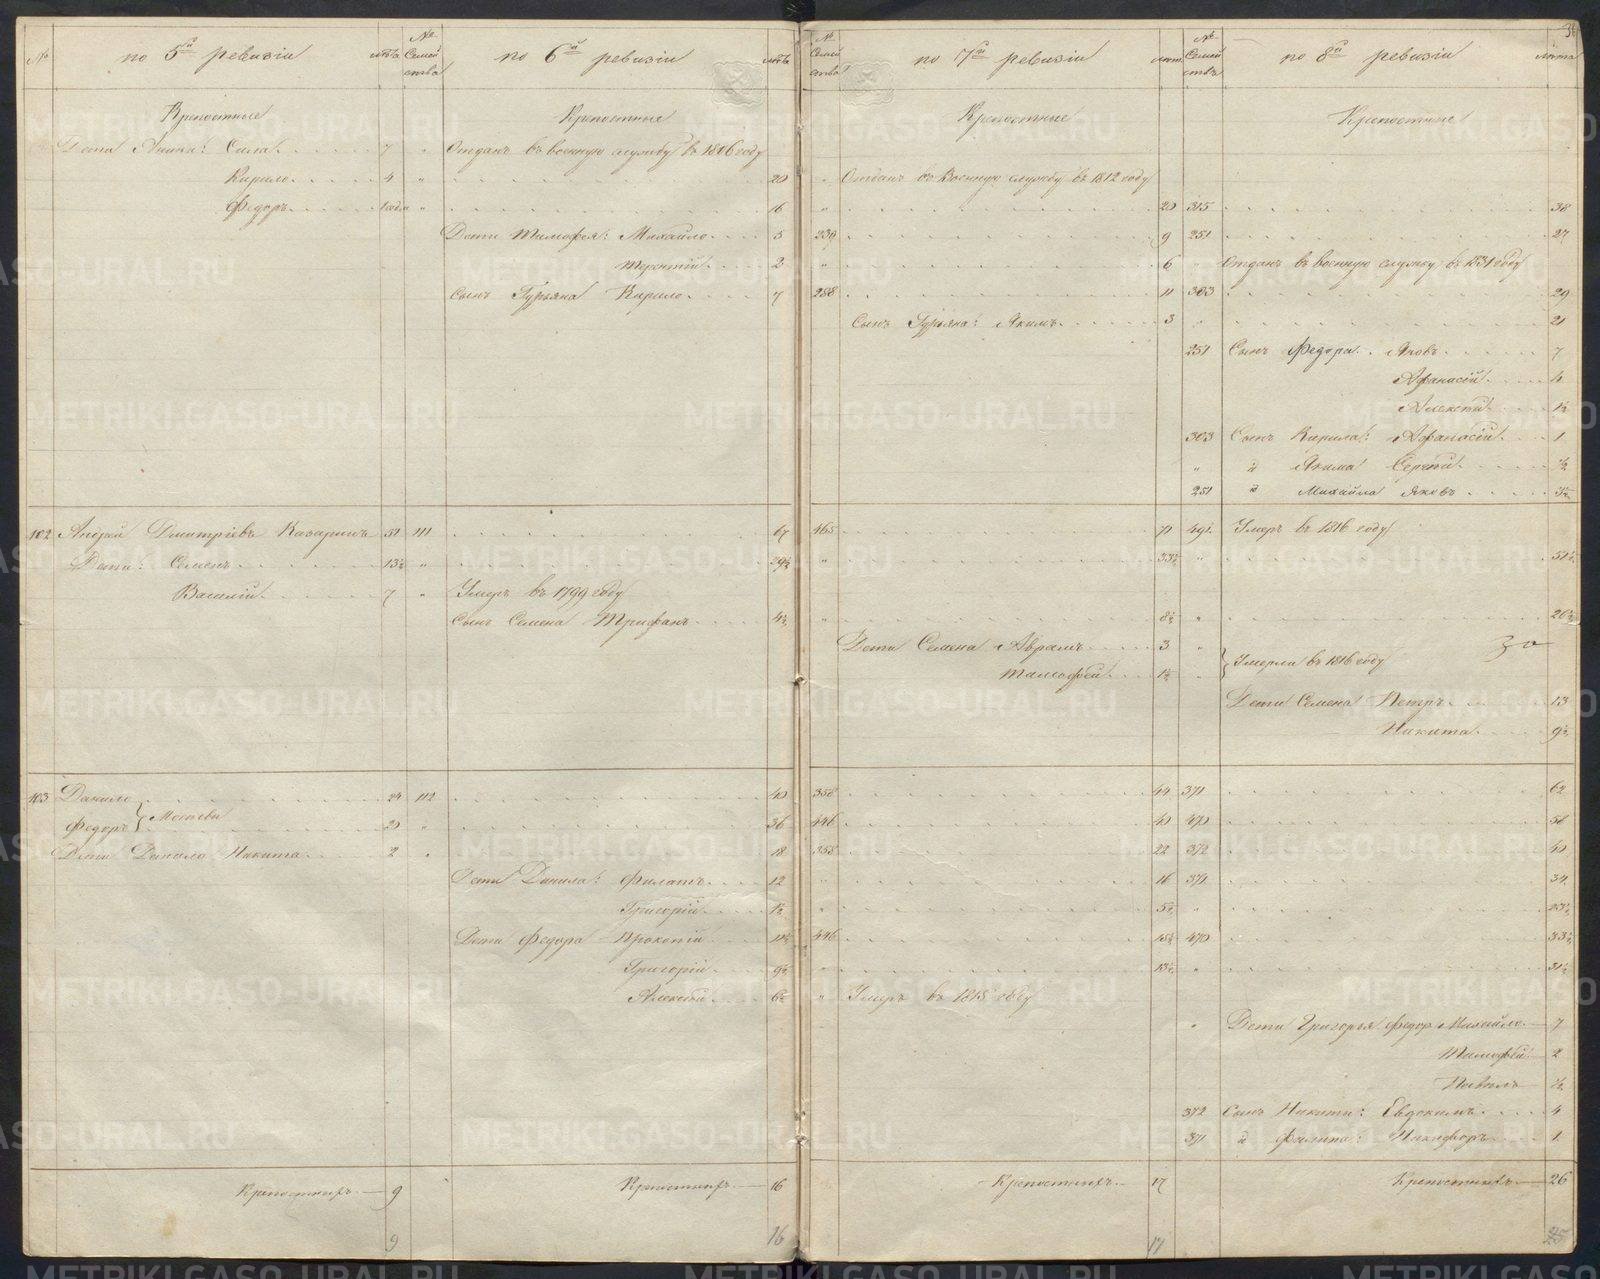 № по 5й ревизіи лѣта № Семей ства по 6й ревизіи лѣта
Крепостные Крепостные
Дети Сила 7 " Отданъ въ военную службу въ 1806 году
Кирило 4 " 20
Федоръ 1 годъ " 16
Дети Тимофея: Михайло 5
Терентій 2
Сынъ Гурьяна Кирило 7
102 Андрей Дмитріевъ Казаринъ 51 111 67
Дети: Семенъ 13½ " 29½
Василій 7 " Умеръ въ 1799 году
Сынъ Семена Трифанъ 4½
103 Данило 24 112 40
Федоръ 20 " 36
Дети Данила Никита 2 " 18
Дети Данила: Филатъ 12
Григорій 1½
Дети Федора Прокопій 11½
Григорій 9½
Алексѣй 6½
Крепостныхъ 9 Крепостныхъ 16
9 16
№ Семей ства по 7й ревизіи лѣта № Семей ства по 8й ревизіи лѣта
Крепостные Крепостные
" Отданъ въ Военную службу въ 1812 году
" 20 315 38
239 9 251 27
" 6 " Отданъ въ военную службу въ 1831 году
288 11 303 29
Сынъ Гурьяна: Якимъ 3 " 21
251 Сынъ Федора Яковъ 7
Афанасій 4
Алексѣй 1½
303 Сынъ Кирила: Афанасій 1
" и Якима Сергѣй ½
251 и Михайла Яковъ 3½
465 71 491 Умеръ въ 1816 году
" 33½ " 51½
" 8½ " 26½
Дети Семена Аврамъ 3 "
Тимофей 1½ " Умерли въ 1816 году
Дети Семена Петръ 13
Никита 9½
358 44 371 62
446 40 470 58
358 22 372 40
" 16 371 34
" 5½ " 23½
446 15½ 470 33½
" 13½ " 31½
" Умеръ въ 1815 году
" Дети Григорья Федор Михайло 7
Тимофей 2
Павелъ ½
372 Сынъ Никиты: Евдокимъ 4
371 и Филипа: Никифоръ 1
Крепостныхъ 17 Крепостныхъ 26
17 25
METRIKI.GASO-URAL.RU